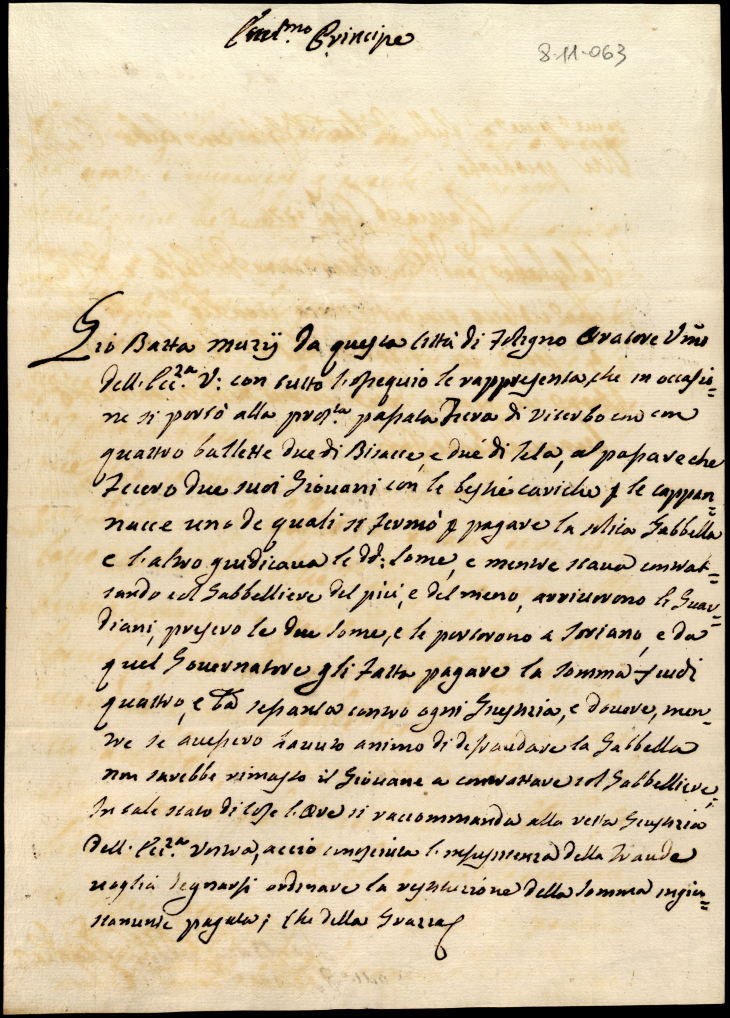 Eccel.mo Principe
8-11-063
Gio Batta Muzij da questa Città di Foligno Oratore Um.o
dell'Ecc.za V: con tutto l'ossequio le rappresenta, che in occasio=
ne si portò alla pros.ta passata Fiera di Viterbo con
quattro ballette due di Bisacce, e due di Tela, al passare che
fecero due suoi Giovani con le bestie cariche p le cappan=
nacce uno de quali si fermò p pagare la solita Gabbella
e l'altro guidicava le dd: some, e mentre stava contrat=
tando col Gabbelliere del più, e del meno, arrivorono li Guar=
diani, presero le due some, e le portorono a Soriano, e da
quel Governatore gli fatta pagare la somma scudi
quattro, e 60 contro ogni Giustizia, e dovere, men=
tre se avessero havuto animo di defraudare la Gabbella
non sarebbe rimasto il Giovane a contrattare col Gabbelliere,
In tale stato di cose l'Ore si raccommanda alla retta Giustizia
dell'Ecc.za Vostra, acciò conosciuta l'insussistenza della fraude
voglia degnarsi ordinare la restituzione della somma ingius=
tamente pagata; Che della Grazia